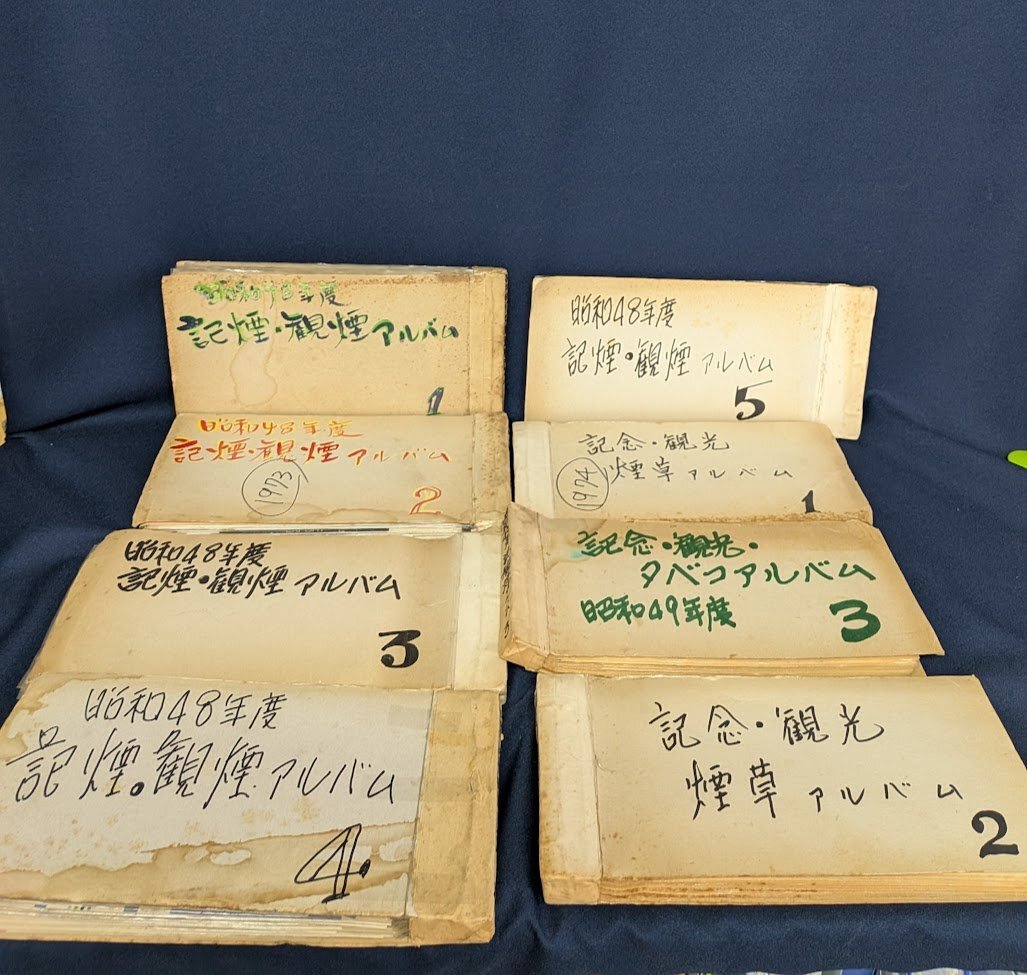 昭和48年度
記煙・観煙アルバム
1
昭和48年度
記煙・観煙アルバム
1973
2
昭和48年度
記煙・観煙アルバム
3
昭和48年度
記煙・観煙アルバム
4.
昭和48年度
記煙・観煙アルバム
5
記念・観光
煙草アルバム
1974
1
記念・観光・
タバコアルバム
昭和49年度
3
記念・観光
煙草アルバム
2